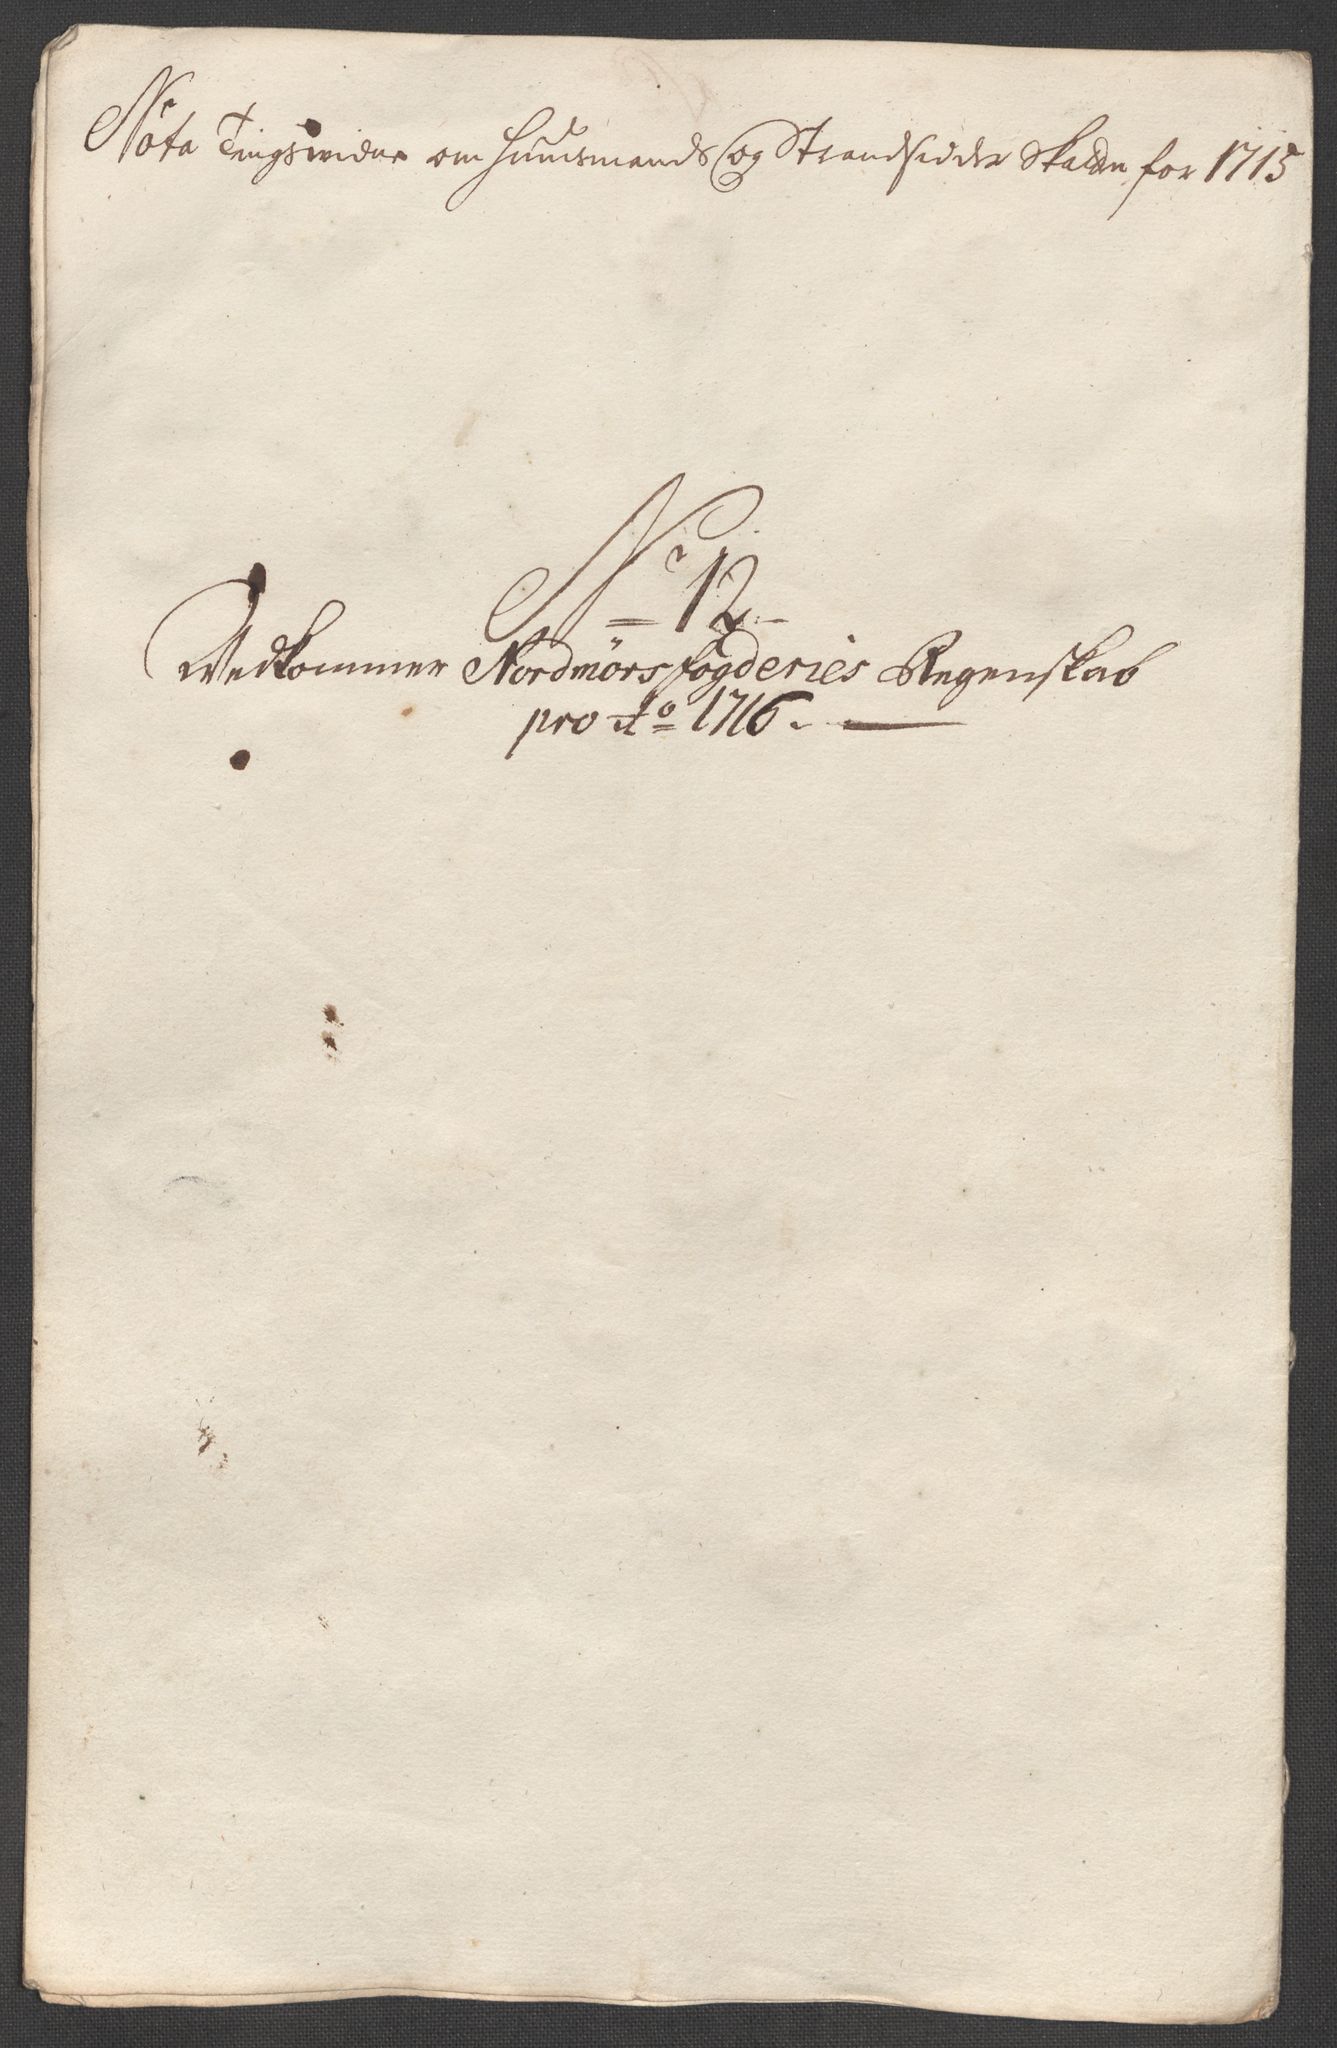 Nota Tingswidne om Huusmands og Strandsidder Skatten for 1715
No 12
Vedkommer Nordmörs fogderies Regenskab
pro Ao 1716.